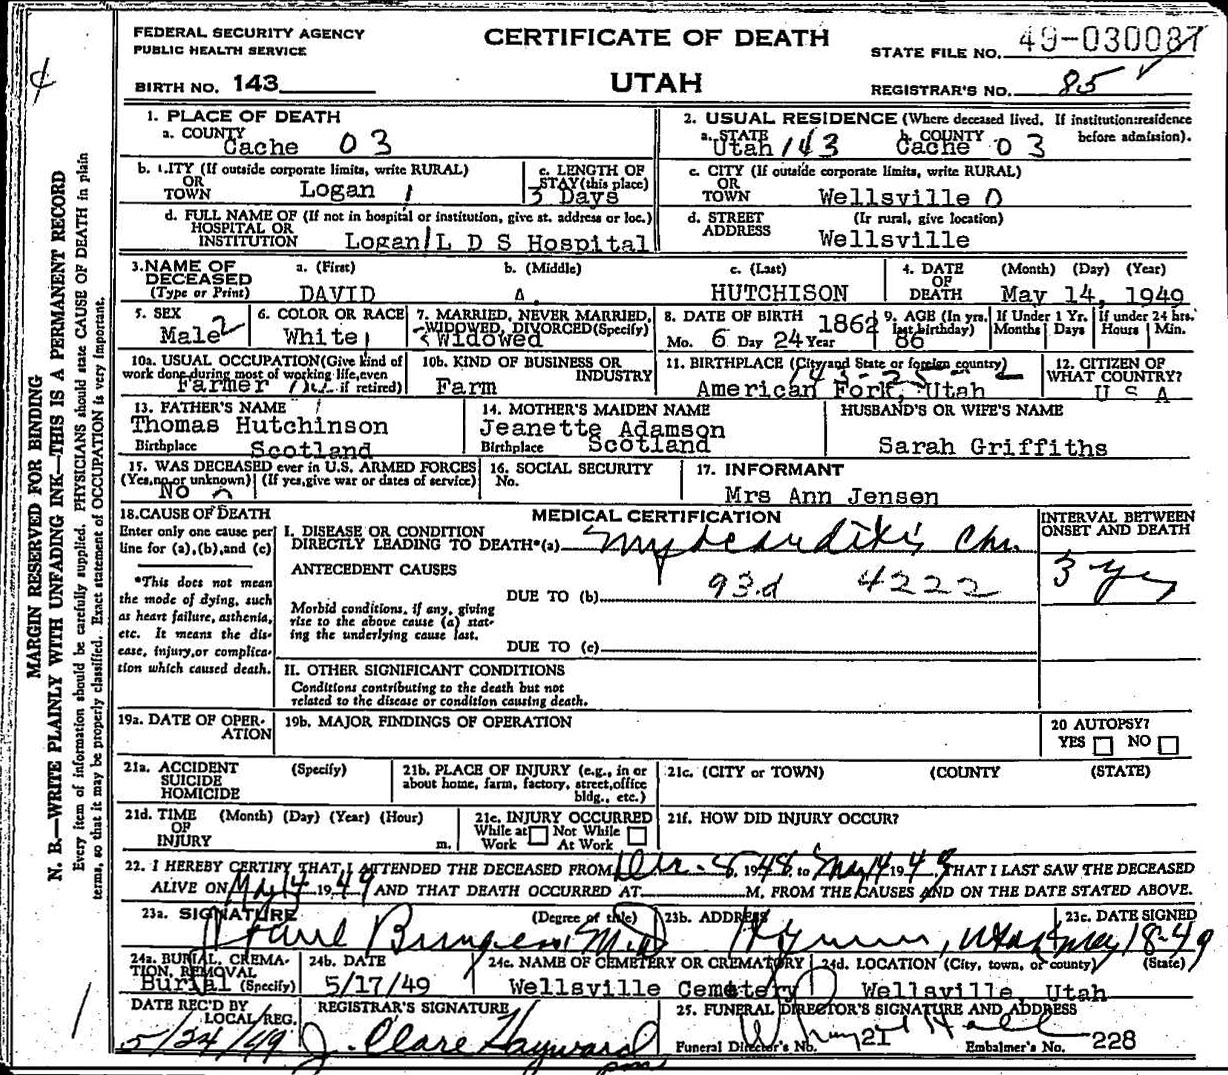 FEDERAL SECURITY AGENCY
PUBLIC HEALTH SERVICE
CERTIFICATE OF DEATH
STATE FILE NO. 49-030087
BIRTH NO. 143
UTAH
REGISTRAR'S NO. 85
MARGIN RESERVED FOR BINDING
N. B.—WRITE PLAINLY WITH UNFADING INK—THIS IS A PERMANENT RECORD
Every item of information should be carefully supplied. PHYSICIANS should state CAUSE OF DEATH in plain
terms, so that it may be properly classified. Exact statement of OCCUPATION is very important.
1. PLACE OF DEATH
a. COUNTY
Cache 03
2. USUAL RESIDENCE (Where deceased lived. If institution:residence
before admission).
a. STATE
Utah 143
b. COUNTY
Cache 03
b. CITY (If outside corporate limits, write RURAL)
OR
TOWN Logan 1
c. LENGTH OF
STAY(this place)
3 Days
c. CITY (If outside corporate limits, write RURAL)
OR
TOWN Wellsville 0
d. FULL NAME OF (If not in hospital or institution, give st. address or loc.)
HOSPITAL OR
INSTITUTION Logan L D S Hospital
d. STREET (If rural, give location)
ADDRESS Wellsville
3. NAME OF
DECEASED
(Type or Print)
a. (First)
DAVID
b. (Middle)
A.
c. (Last)
HUTCHISON
4. DATE
OF
DEATH
(Month) (Day) (Year)
May 14, 1949
5. SEX
Male 2
6. COLOR OR RACE
White 1
7. MARRIED, NEVER MARRIED,
WIDOWED, DIVORCED(Specify)
Widowed
8. DATE OF BIRTH
Mo. 6 Day 24 Year 1862
9. AGE (In yrs.
last birthday)
86
If Under 1 Yr.
Months Days
If under 24 hrs.
Hours Min.
10a. USUAL OCCUPATION(Give kind of
work done during most of working life, even
if retired)
Farmer
10b. KIND OF BUSINESS OR
INDUSTRY
Farm
11. BIRTHPLACE (City and State or foreign country)
American Fork, Utah
12. CITIZEN OF
WHAT COUNTRY?
U S A
13. FATHER'S NAME
Thomas Hutchinson
Birthplace Scotland
14. MOTHER'S MAIDEN NAME
Jeanette Adamson
Birthplace Scotland
HUSBAND'S OR WIFE'S NAME
Sarah Griffiths
15. WAS DECEASED ever in U.S. ARMED FORCES
(Yes, no or unknown) (If yes, give war or dates of service)
No
16. SOCIAL SECURITY
No.
17. INFORMANT
Mrs Ann Jensen
18. CAUSE OF DEATH
Enter only one cause per
line for (a), (b), and (c)
*This does not mean
the mode of dying, such
as heart failure, asthenia,
etc. It means the dis-
ease, injury, or complica-
tion which caused death.
MEDICAL CERTIFICATION
I. DISEASE OR CONDITION
DIRECTLY LEADING TO DEATH*(a) Myocarditis Chr.
ANTECEDENT CAUSES
93.d 4222
DUE TO (b)
Morbid conditions, if any, giving
rise to the above cause (a) stat-
ing the underlying cause last.
DUE TO (c)
II. OTHER SIGNIFICANT CONDITIONS
Conditions contributing to the death but not
related to the disease or condition causing death.
INTERVAL BETWEEN
ONSET AND DEATH
3 yrs
19a. DATE OF OPER-
ATION
19b. MAJOR FINDINGS OF OPERATION
20 AUTOPSY?
YES NO
21a. ACCIDENT (Specify)
SUICIDE
HOMICIDE
21b. PLACE OF INJURY (e.g., in or
about home, farm, factory, street, office
bldg., etc.)
21c. (CITY or TOWN) (COUNTY) (STATE)
21d. TIME (Month) (Day) (Year) (Hour)
OF
INJURY m.
21e. INJURY OCCURRED
While at Not While
Work At Work
21f. HOW DID INJURY OCCUR?
22. I HEREBY CERTIFY THAT I ATTENDED THE DECEASED FROM Dec. 8, 1948, to May 14 1949, THAT I LAST SAW THE DECEASED
ALIVE ON May 14 1949 AND THAT DEATH OCCURRED AT M, FROM THE CAUSES AND ON THE DATE STATED ABOVE.
23a. SIGNATURE (Degree of title)
M.D.
23b. ADDRESS
Hyrum, Utah
23c. DATE SIGNED
May 18-49
24a. BURIAL, CREMA-
TION, REMOVAL
Burial (Specify)
24b. DATE
5/17/49
24c. NAME OF CEMETERY OR CREMATORY
Wellsville Cemetery
24d. LOCATION (City, town, or county) (State)
Wellsville Utah
DATE REC'D BY
LOCAL REG.
5/24/49
REGISTRAR'S SIGNATURE
J. Clare Hayward
25. FUNERAL DIRECTOR'S SIGNATURE AND ADDRESS
Hall
Funeral Director's No. 21 Embalmer's No. 228